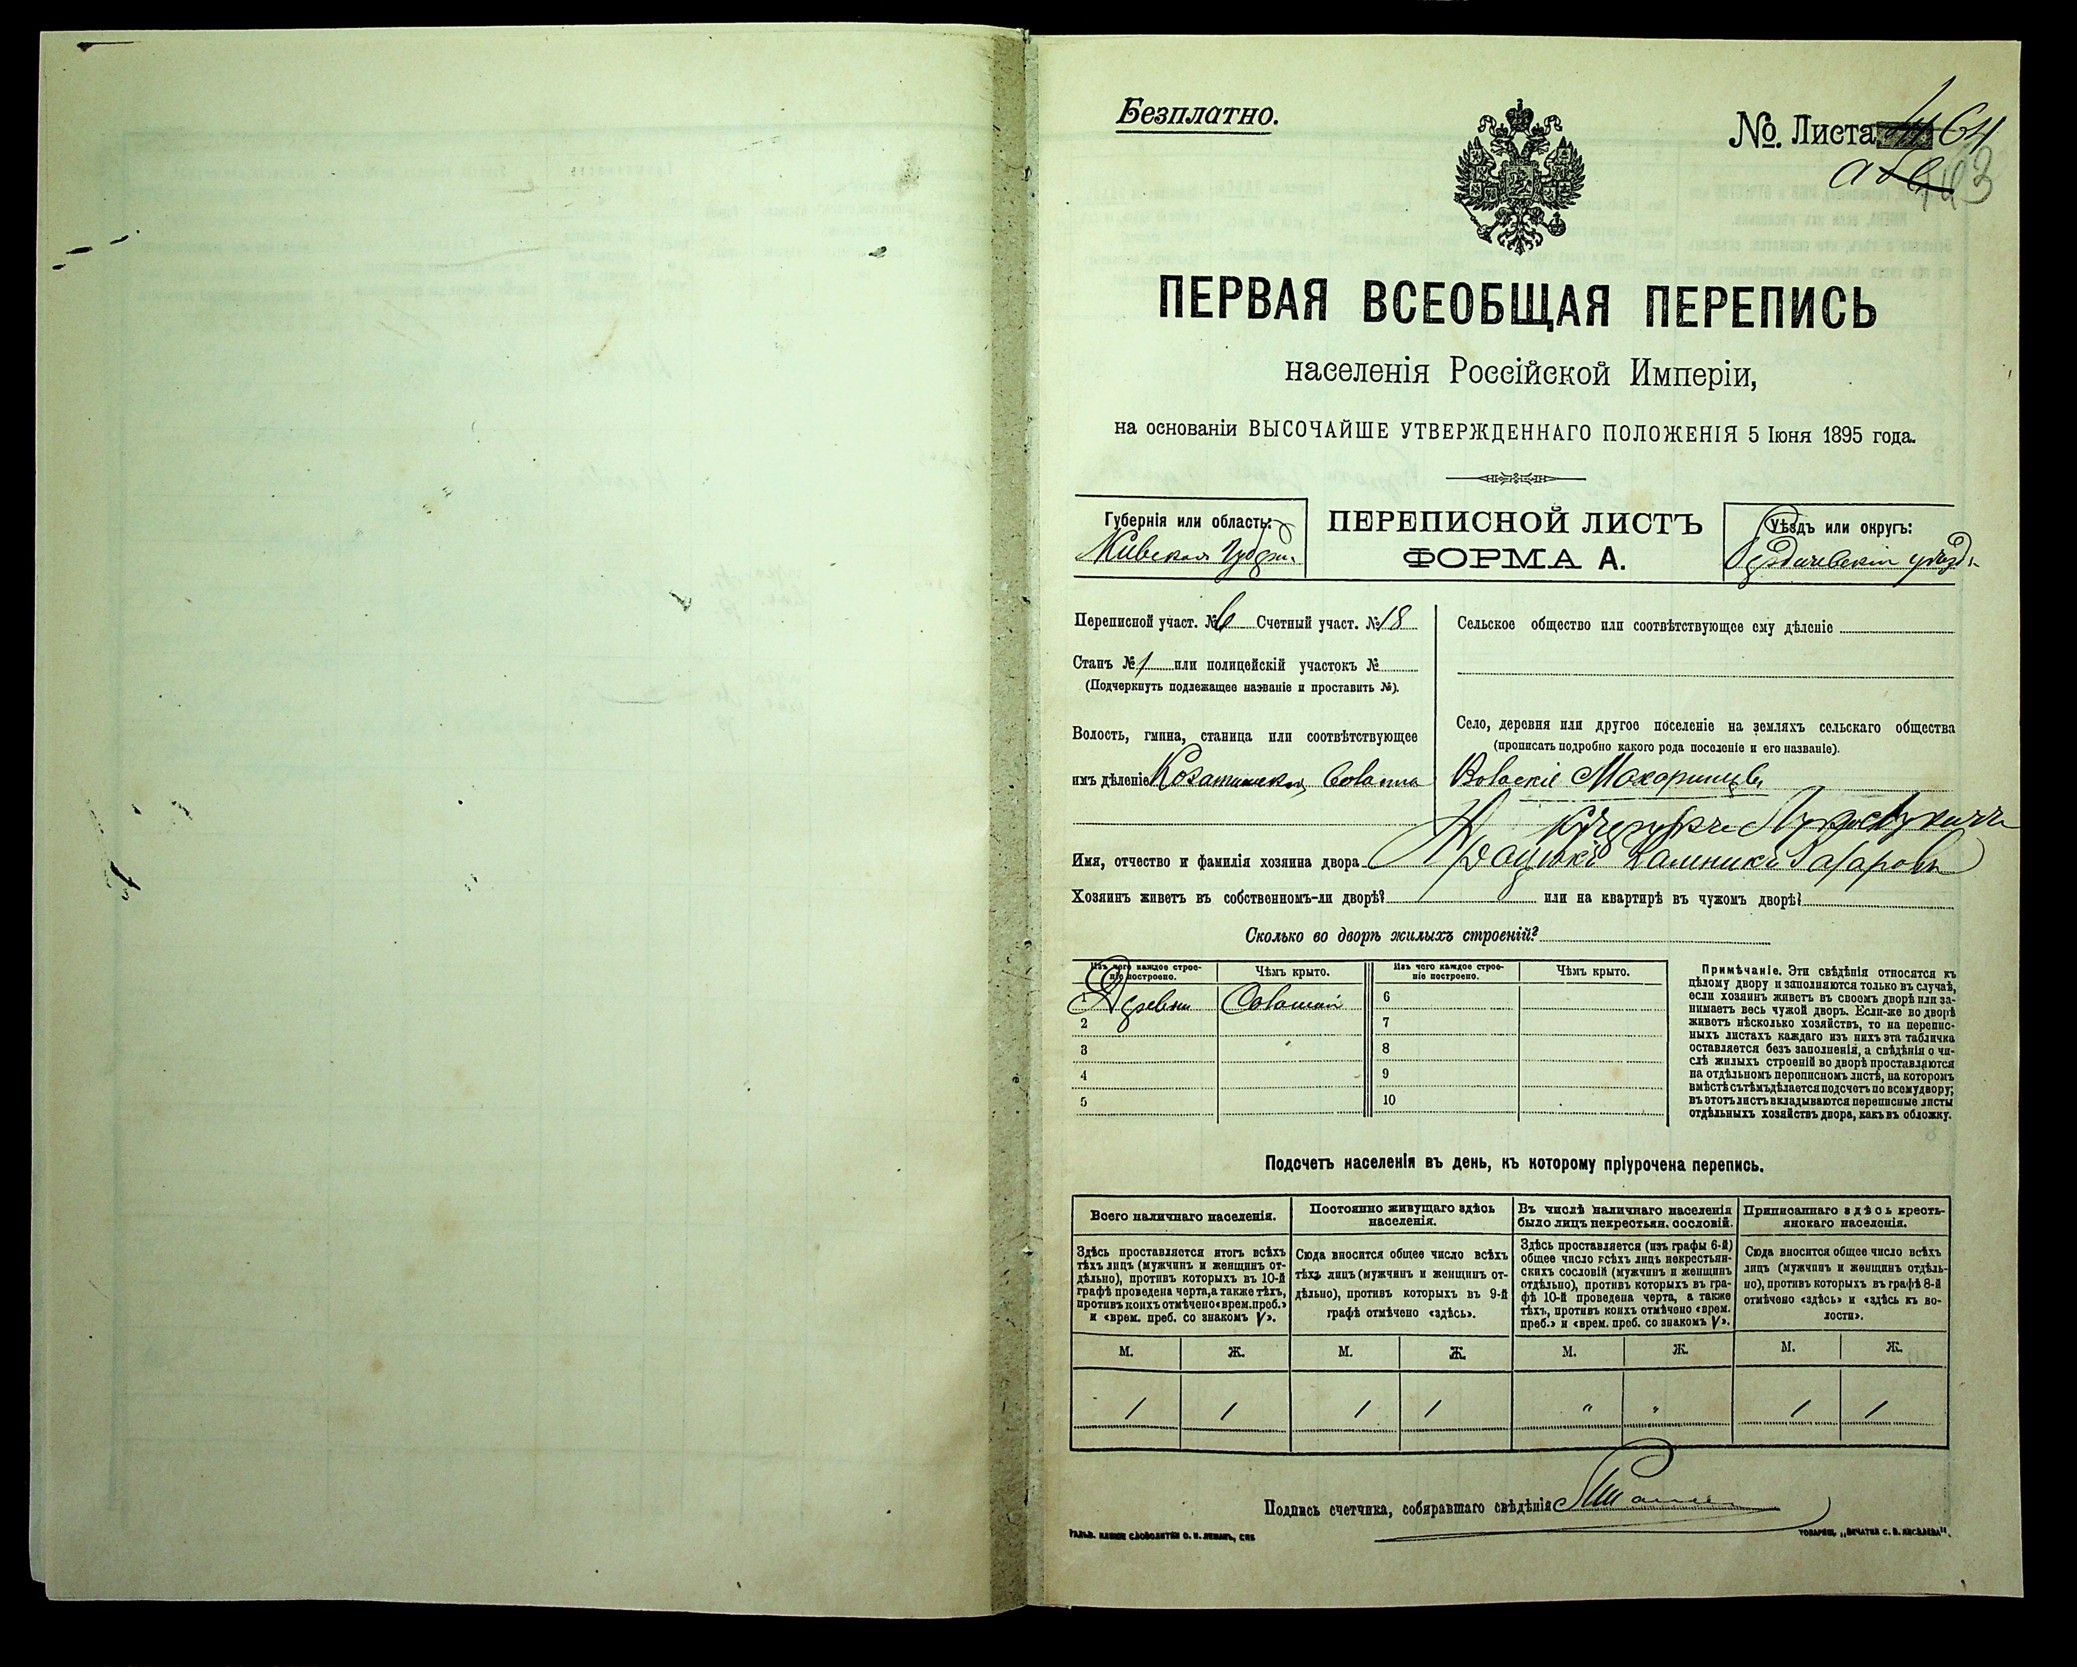 Безплатно.
№. Листа 64
ПЕРВАЯ ВСЕОБЩАЯ ПЕРЕПИСЬ
населенія Россійской Имперіи,
на основаніи ВЫСОЧАЙШЕ УТВЕРЖДЕННАГО ПОЛОЖЕНІЯ 5 Іюня 1895 года.
Губернія или область:
Кіевская Губерн.
ПЕРЕПИСНОЙ ЛИСТЪ
ФОРМА А.
Уѣздъ или округъ:
Бердичевскій уѣздъ
Переписной участ. № 6 Счетный участ. № 18
Станъ № 1 или полицейскій участокъ №
(Подчеркнуть подлежащее названіе и проставить №).
Волость, гмина, станица или соотвѣтствующее
имъ дѣленіе
Сельское общество или соотвѣтствующее ему дѣленіе
Село, деревня или другое поселеніе на земляхъ сельскаго общества
(прописать подробно какого рода поселеніе и его названіе).
Имя, отчество и фамилія хозяина двора
Хозяинъ живетъ въ собственномъ-ли дворѣ? или на квартирѣ въ чужомъ дворѣ?
Сколько во дворѣ жилыхъ строеній?
Изъ чего каждое строе-
ніе построено.
Чѣмъ крыто.
Изъ чего каждое строе-
ніе построено.
Чѣмъ крыто.
1 6
2 7
3 8
4 9
5 10
Примѣчаніе. Эти свѣдѣнія относятся къ
цѣлому двору и заполняются только въ случаѣ,
если хозяинъ живетъ въ своемъ дворѣ или за-
нимаетъ весь чужой дворъ. Если-же во дворѣ
живетъ нѣсколько хозяйствъ, то на перепис-
ныхъ листахъ каждаго изъ нихъ эта табличка
оставляется безъ заполненія, а свѣдѣнія о чи-
слѣ жилыхъ строеній во дворѣ проставляются
на отдѣльномъ переписномъ листѣ, на которомъ
вмѣстѣ съ тѣмъ дѣлается подсчетъ по всему двору;
въ этотъ листъ вкладываются переписные листы
отдѣльныхъ хозяйствъ двора, какъ въ обложку.
Подсчетъ населенія въ день, къ которому пріурочена перепись.
Всего наличнаго населенія.
Здѣсь проставляется итогъ всѣхъ
тѣхъ лицъ (мужчинъ и женщинъ от-
дѣльно), противъ которыхъ въ 10-й
графѣ проведена черта, а также тѣхъ,
противъ коихъ отмѣчено «врем. преб.»
и «врем. преб. со знакомъ V».
Постоянно живущаго здѣсь
населенія.
Сюда вносится общее число всѣхъ
тѣхъ лицъ (мужчинъ и женщинъ от-
дѣльно), противъ которыхъ въ 9-й
графѣ отмѣчено «здѣсь».
Въ числѣ наличнаго населенія
было лицъ некрестьян. сословій.
Здѣсь проставляется (изъ графы 6-й)
общее число всѣхъ лицъ некрестьян-
скихъ сословій (мужчинъ и женщинъ
отдѣльно), противъ которыхъ въ гра-
фѣ 10-й проведена черта, а также
тѣхъ, противъ коихъ отмѣчено «врем.
преб.» и «врем. преб. со знакомъ V».
Приписаннаго здѣсь кресть-
янскаго населенія.
Сюда вносится общее число всѣхъ
лицъ (мужчинъ и женщинъ отдѣль-
но), противъ которыхъ въ графѣ 8-й
отмѣчено «здѣсь» и «здѣсь къ во-
лости».
М. Ж. М. Ж. М. Ж. М. Ж.
1 1 1 1 " " 1 1
Подпись счетчика, собиравшаго свѣдѣнія
ГАЛЬВ. КЛИШЕ СЛОВОЛИТНИ О. И. ЛЕМАНЪ, СПБ
ТОВАРИЩ. „ПЕЧАТНЯ С. П. ЯКОВЛЕВА".